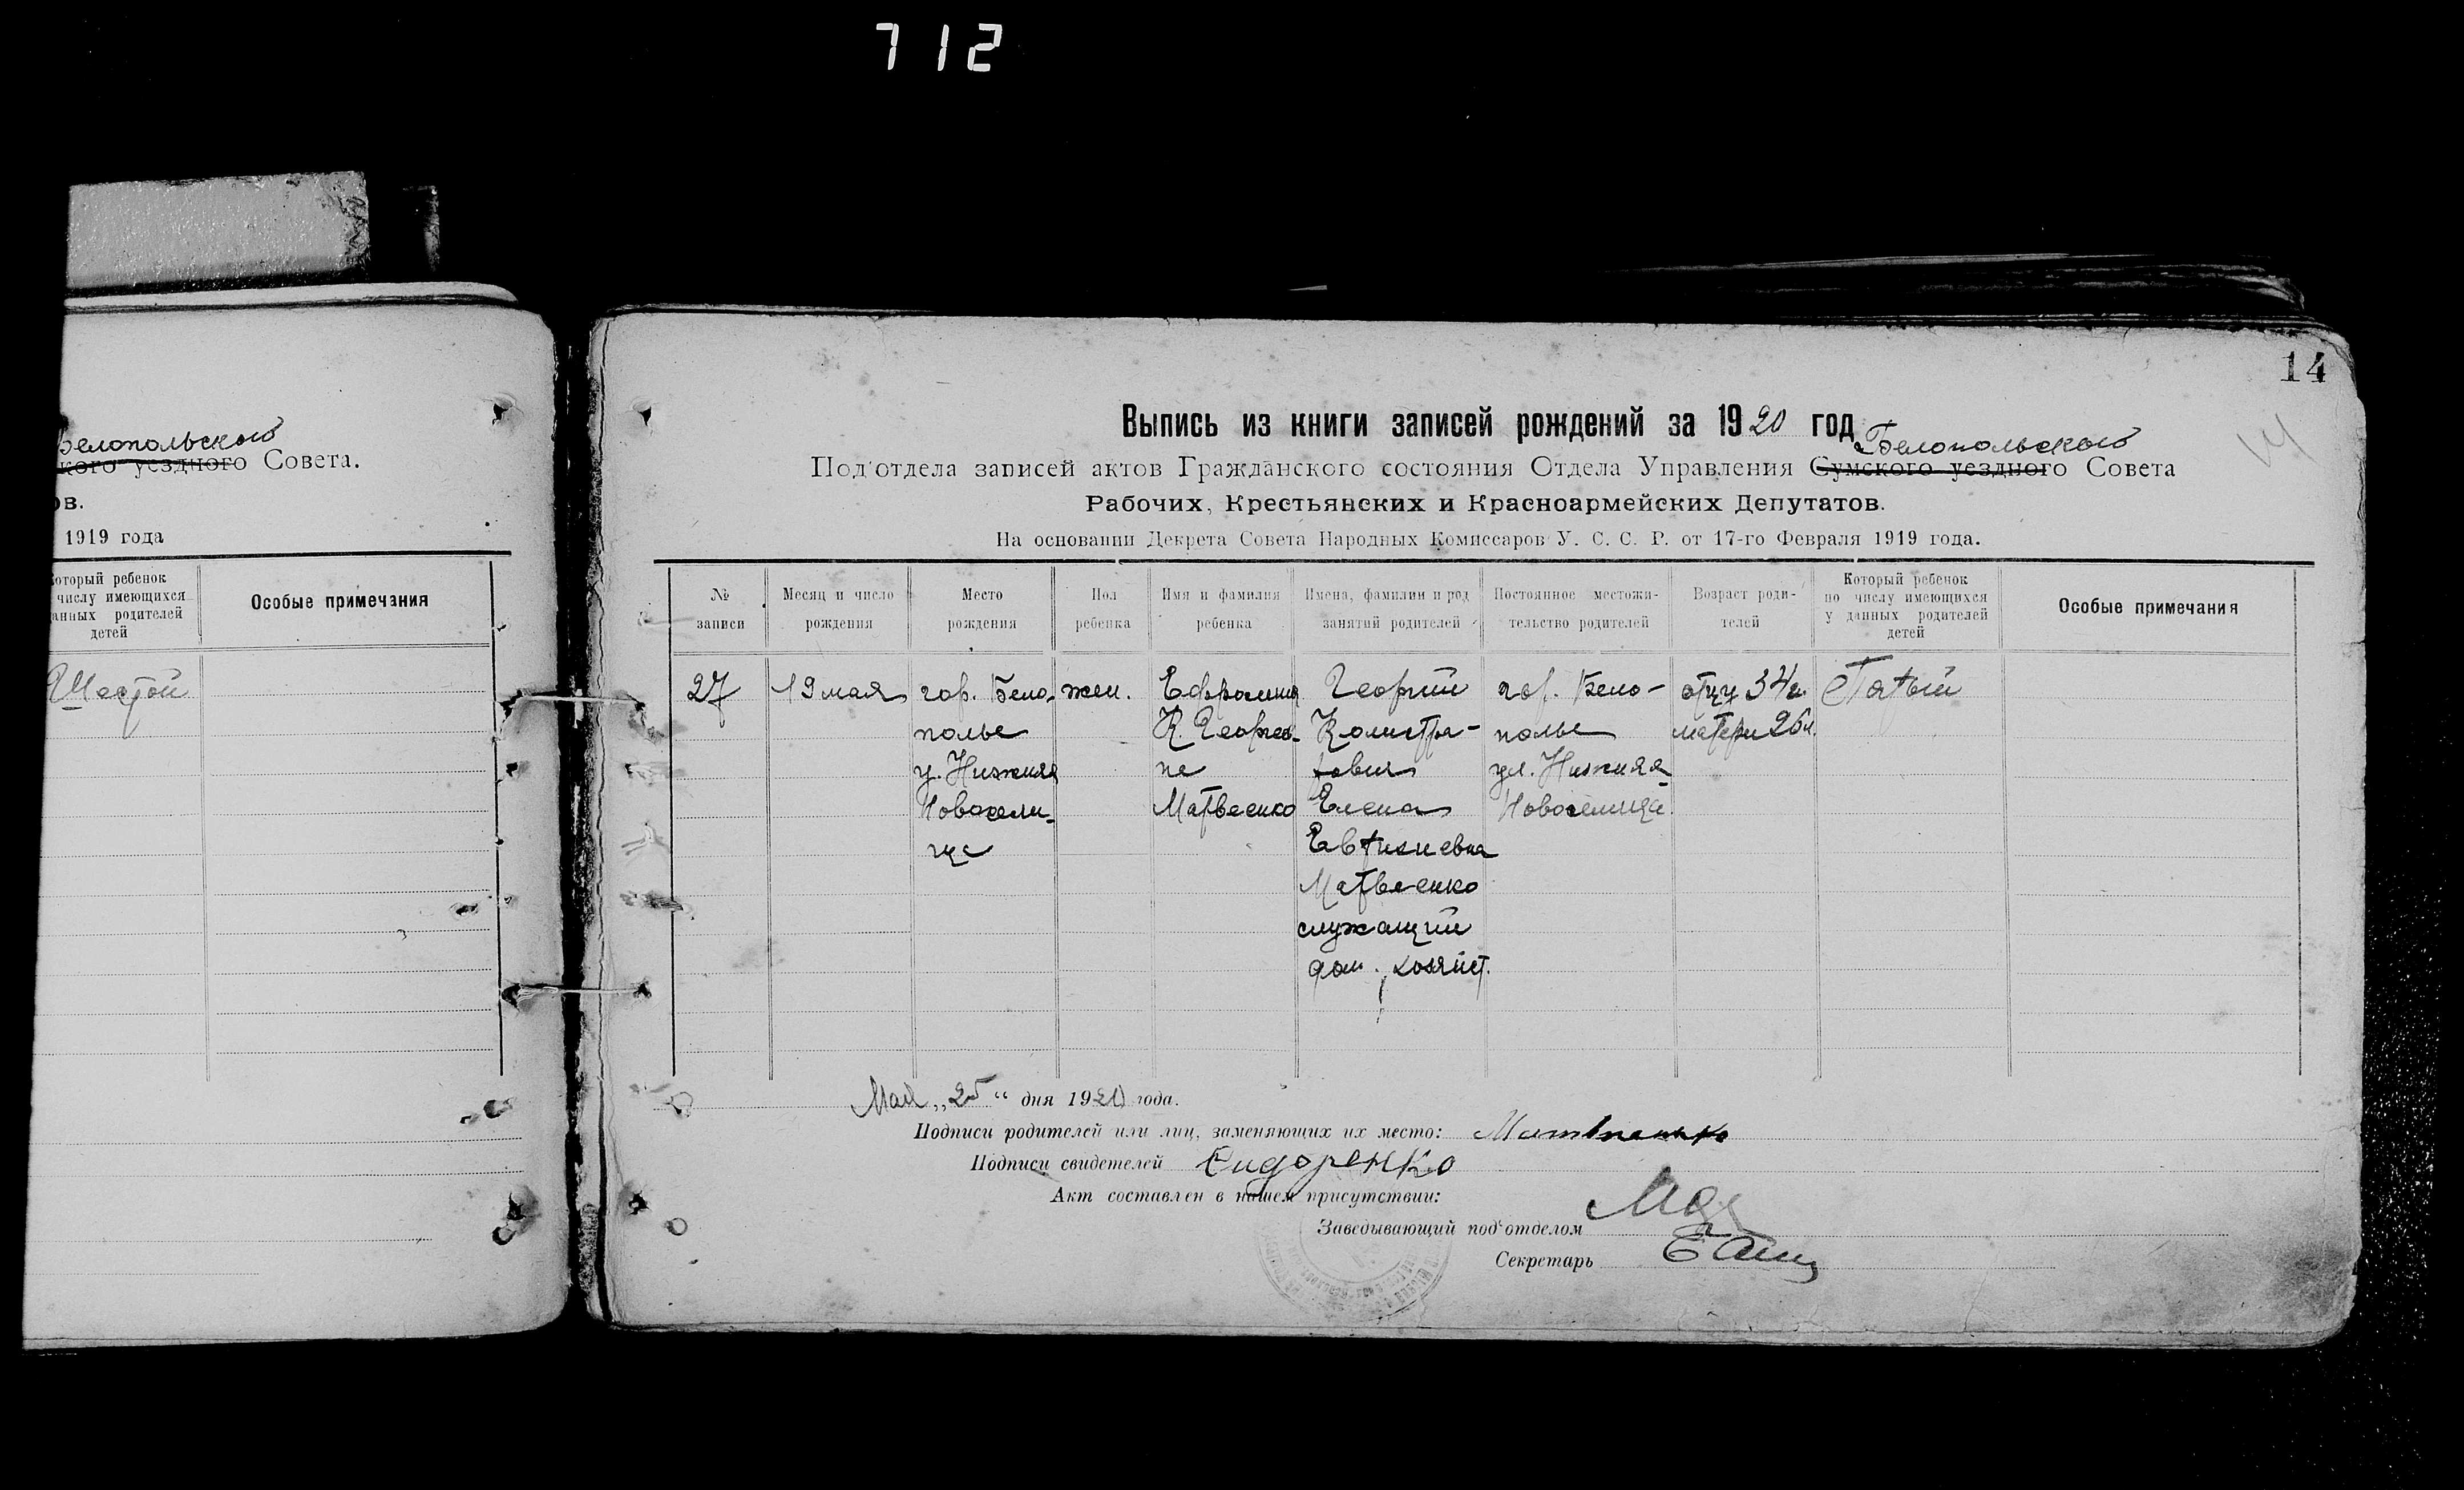 712
Белопольского
кого уездного Совета.
ов.
1919 года
который ребенок
числу имеющихся
анных родителей
детей
Особые примечания
Шестой
14
14
Выпись из книги записей рождений за 1920 год
Белопольского
Под'отдела записей актов Гражданского состояния Отдела Управления Сумского уездного Совета
Рабочих, Крестьянских и Красноармейских Депутатов.
На основании Декрета Совета Народных Комиссаров У. С. С. Р. от 17-го Февраля 1919 года.
№ записи
Месяц и число рождения
Место рождения
Пол ребенка
Имя и фамилия ребенка
Имена, фамилии и род занятий родителей
Постоянное местожи-
тельство родителей
Возраст роди-
телей
Который ребенок
по числу имеющихся
у данных родителей
детей
Особые примечания
27
19 мая
гор. Бело-
полье
у. Нижняя
Новосели-
ца
жен.
Ефросиния
Георгиев-
на
Матвеенко
Георгий
Елена
Евтихиевна
Матвеенко
служащий
дом. хозяйст.
гор. Бело-
полье
ул. Нижняя
Новоселица
отцу 34 г.
матери 26 л.
Пятый
Мая „25“ дня 1920 года.
Подписи родителей или лиц, заменяющих их место: Матвеенко
Подписи свидетелей Сидоренко
Акт составлен в нашем присутствии:
Заведывающий под'отделом
Секретарь